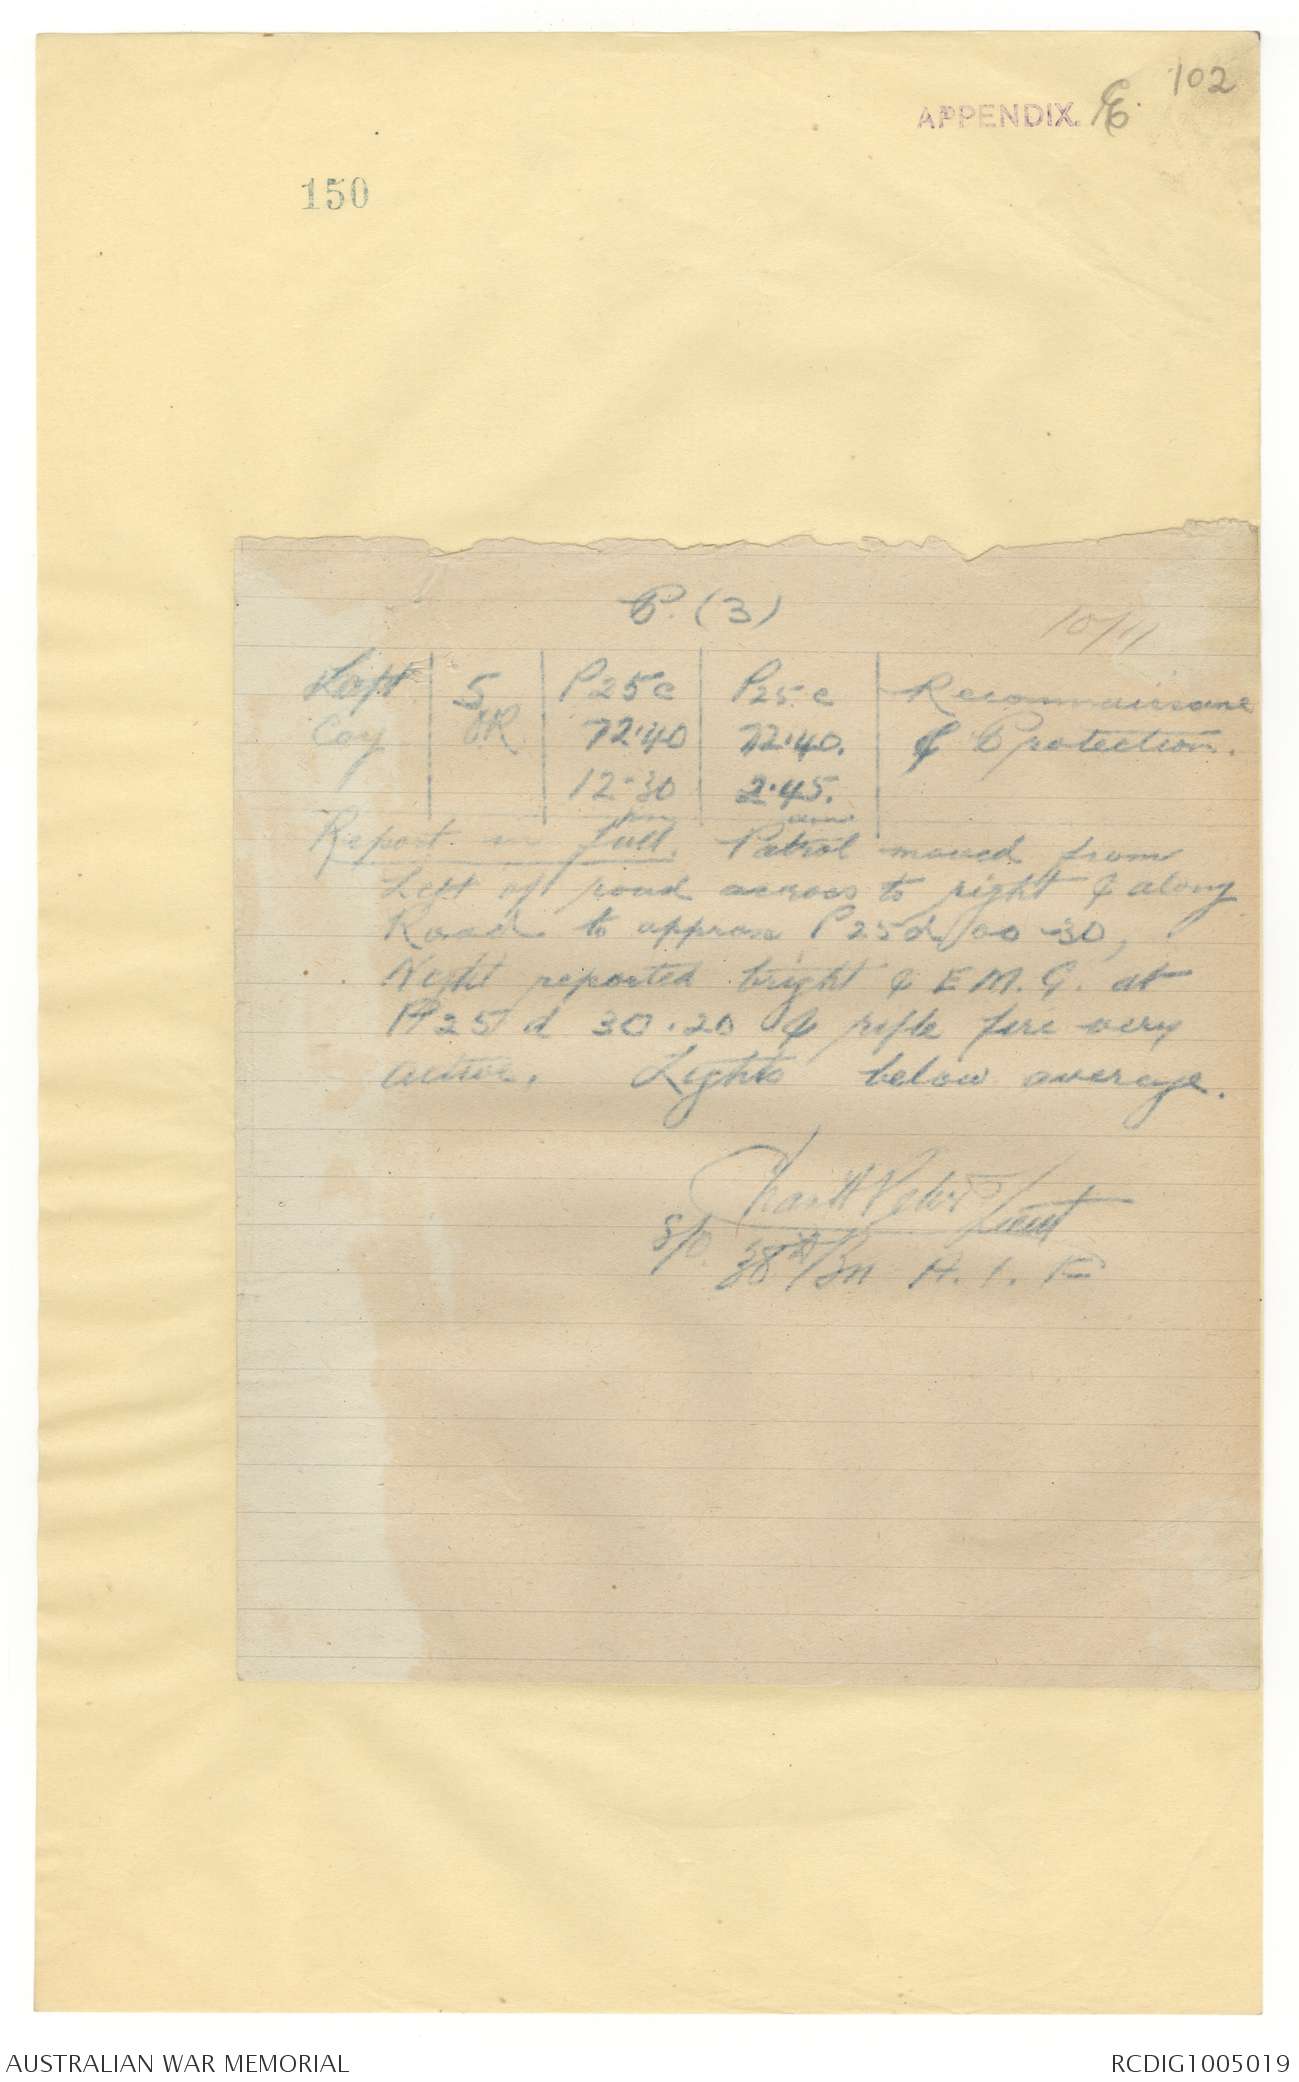 102
APPENDIX.
150
P. (3)
10/11
Left | 5 | P25c | P25.c | Reconnaissance
Coy | OR | 72.40 | 72.40. | & Protection.
12-30 | 2.45.
pm | am
Report in full. Patrol moved from
Left of road across to right & along
Road to approx P25d 00-30,
Night reported bright & E M. G. at
P25 d 30.20 & rifle fire very
active. Lights below average.
Lieut
38th/Bn A. I. F
AUSTRALIAN WAR MEMORIAL
RCDIG1005019